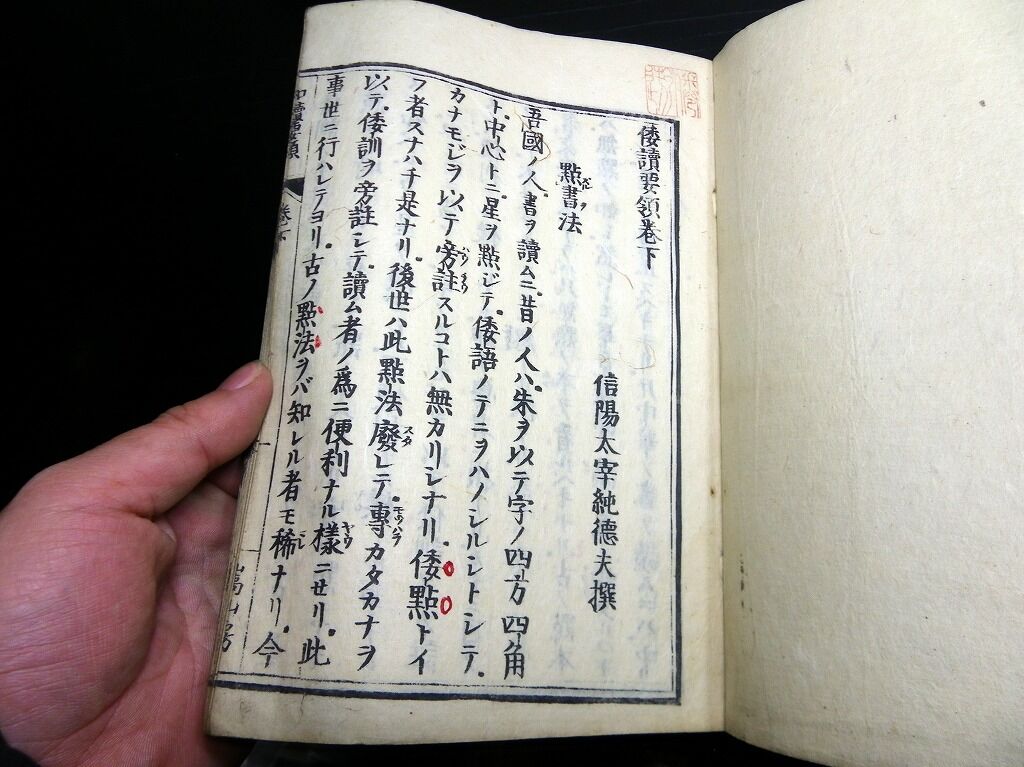 倭讀要領卷下
信陽太宰純德夫撰
點書法
吾國ノ人書ヲ讀ムニ昔ノ人ハ朱ヲ以テ字ノ四方四角
ト中心トニ星ヲ點ジテ倭語ノテニヲハノシルシトシテ
カナモジヲ以テ旁註スルコトハ無カリシナリ倭點トイ
フ者スナハチ是ナリ後世ハ此點法廢レテ專カタカナヲ
以テ倭訓ヲ旁註シテ讀ム者ノ爲ニ便利ナル樣ニセリ此
事世ニ行ハレテヨリ古ノ點法ヲバ知レル者モ稀ナリ今
卷下
嵩山房